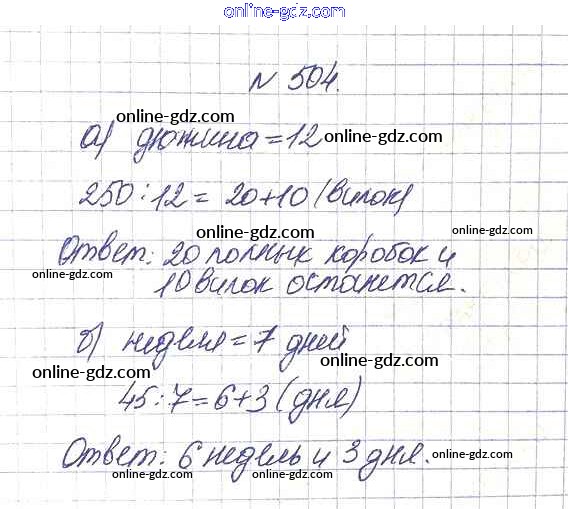 online-gdz.com
N 504.
online-gdz.com
а) дюжина = 12 online-gdz.com
250 : 12 = 20 + 10 (вилок)
online-gdz.com online-gdz.com
Ответ: 20 полных коробок и
10 вилок останется.
online-gdz.com online-gdz.com
online-gdz.com
б) неделя = 7 дней
online-gdz.com online-gdz.com
45 : 7 = 6 + 3 (дня)
online-gdz.com
Ответ: 6 недель и 3 дня. online-gdz.com
online-gdz.com
online-gdz.com